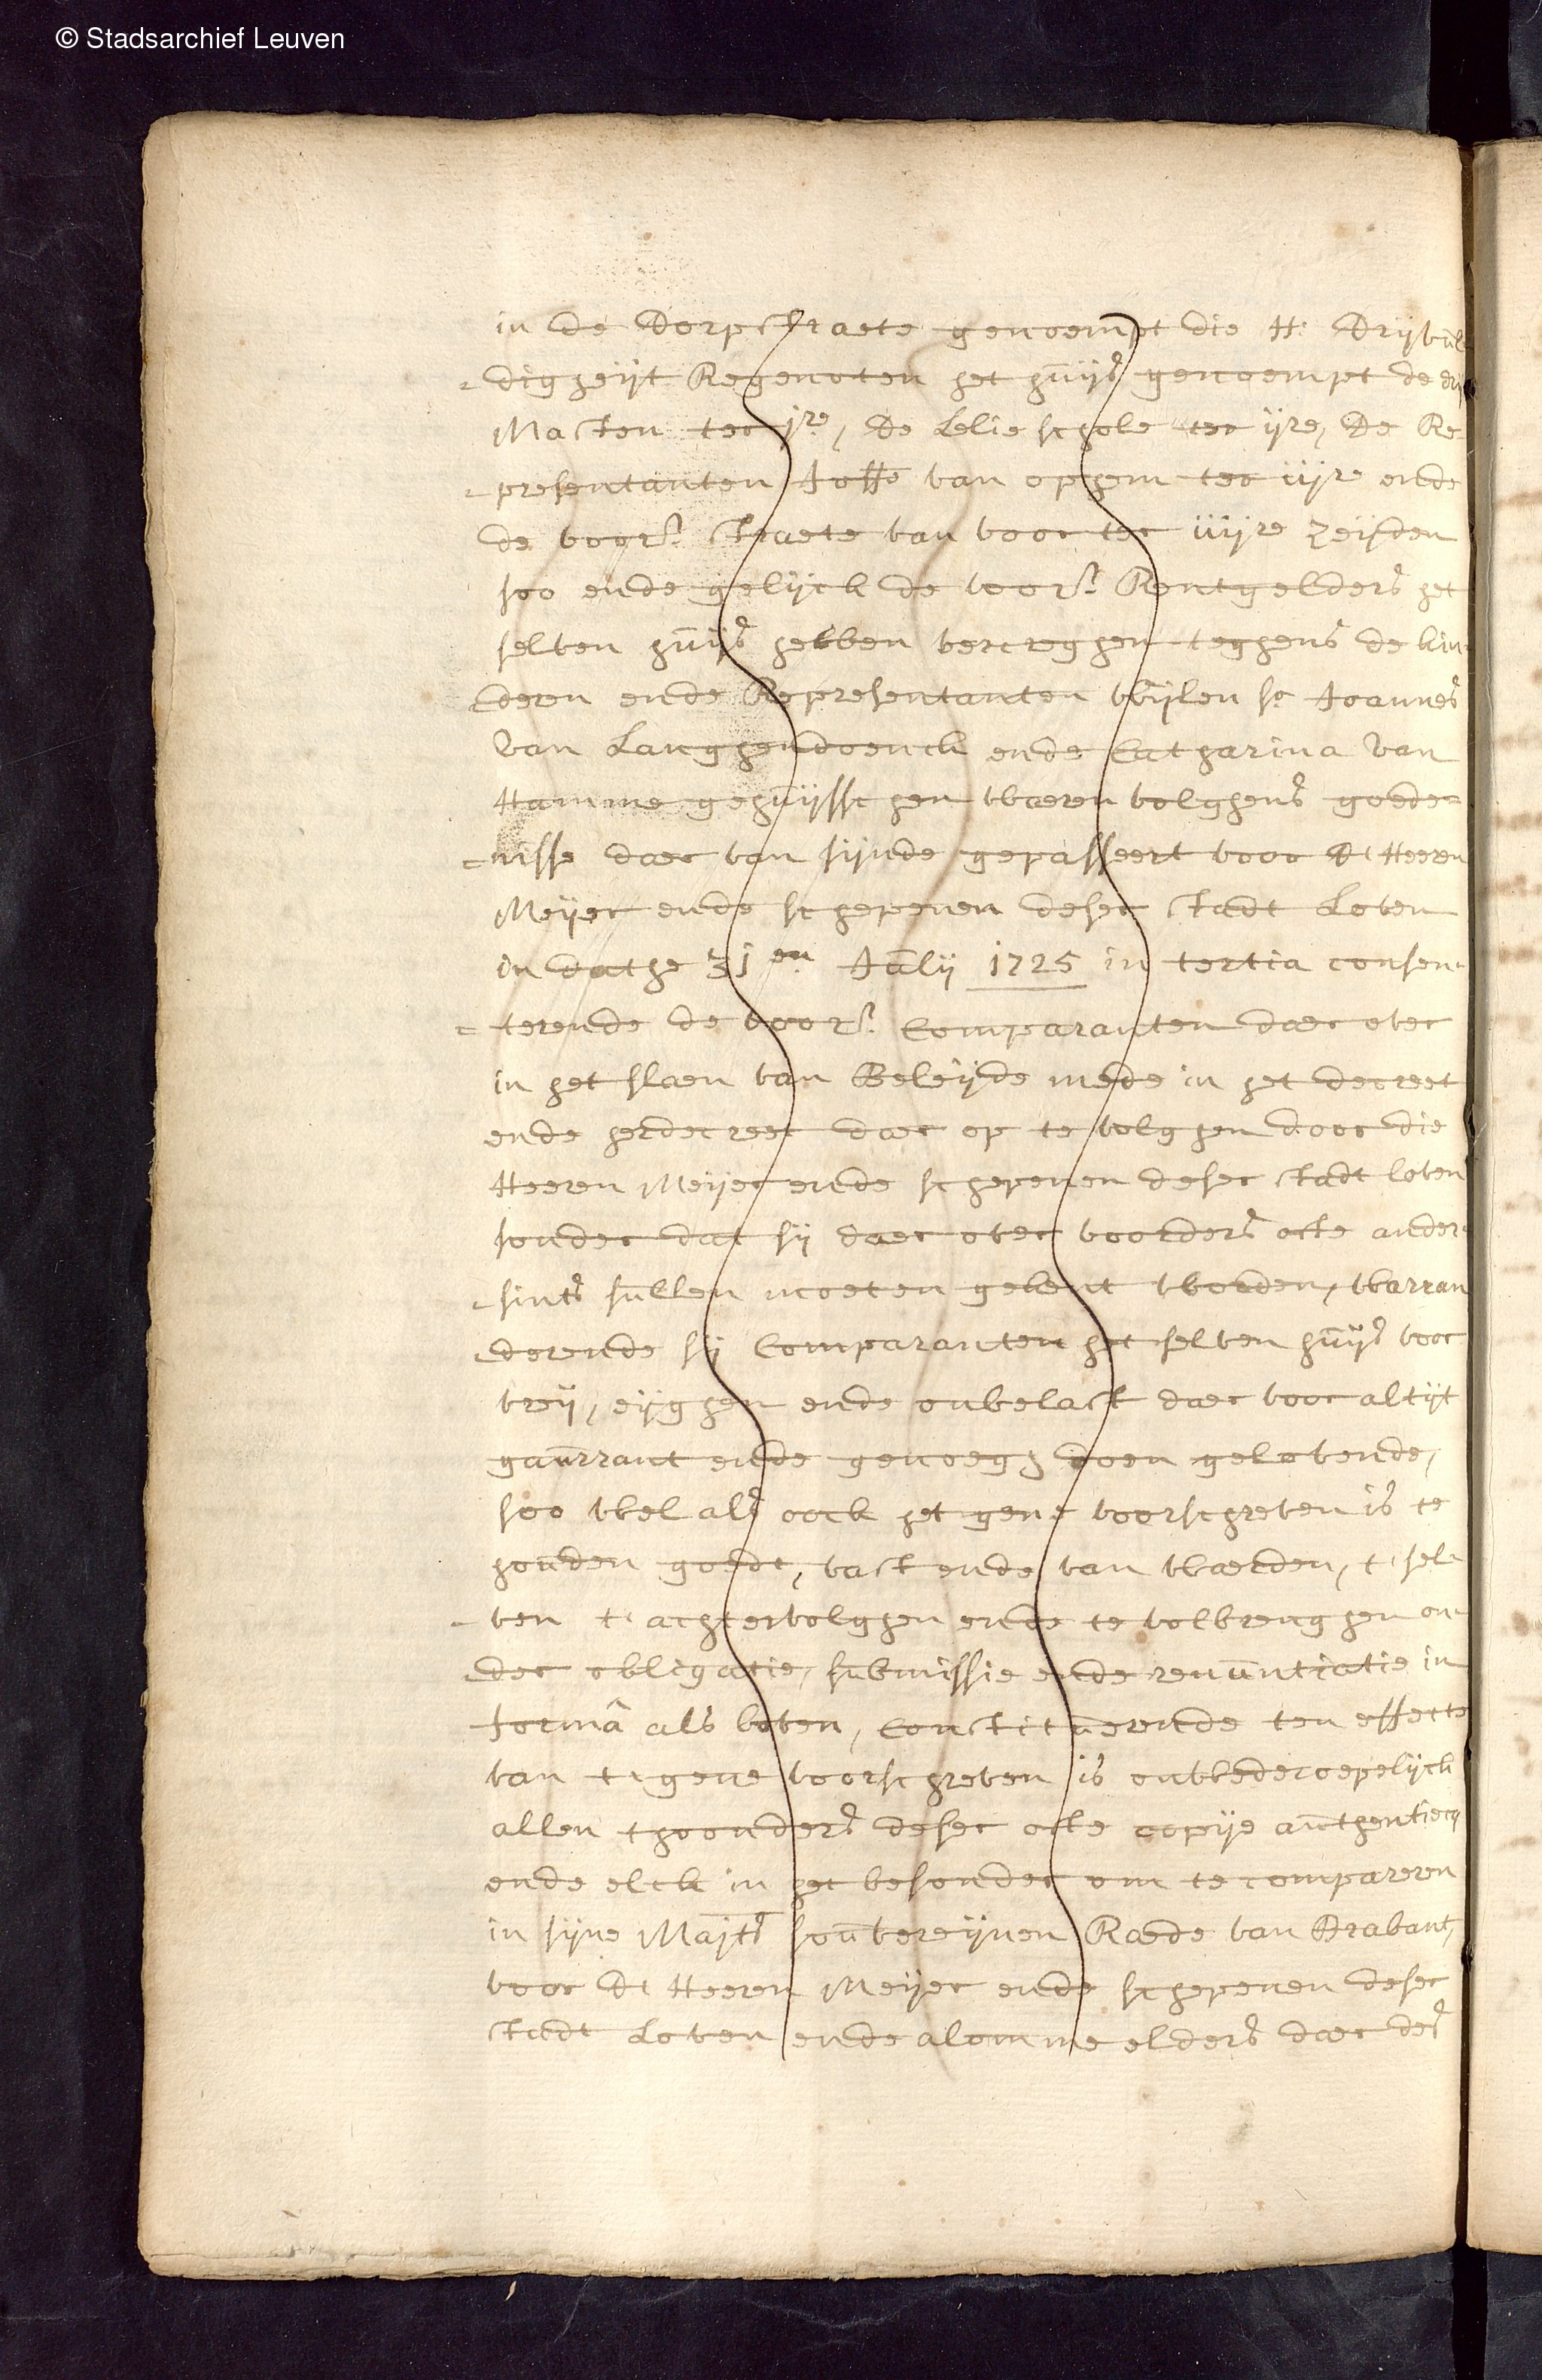 © Stadsarchief Leuven
in de Dorpstraete genoempt die H: Drijvul
digheijt Regenoten het huijs genoempt de drij
Masten ter jre, de Lelie schole ter ijre, de Re-
presentanten Joffe van ophem ter iijre ende
de voors. straete van voor ter iiijre zeijden
soo ende gelijck de voors. Rentgelders het
selven huijs hebben vercreghen teghens de kin-
deren ende Representanten wijlen sr Joannes
van Langhendonck ende Catharina van
Hamme gehuijsschen waeren volghens goede-
nisse daer van sijnde gepasseert voor d'Heeren
Meijer ende schepenen deser stadt Loven
in dathe 31en July 1725 in tertia consen-
terende de voors. Comparanten daer over
in het slaen van Beleijde mede in het decreet
ende herdecreet daer op te volghen door die
Heeren Meijer ende schepenen deser stadt loven
sonder dat sij daer over voorders ofte ander
sints sullen moeten gekent worden, warran
derende sij Comparanten het selven huijs voor
vrij, eijghen ende onbelast daer voor altijt
gaurrant ende genoegh doen gelovende,
soo wel als oock het gene voorschreven is te
houden goedt, vast ende van waerden, t'sel-
ven t'achtervolghen ende te volbrenghen on-
der obligatie, submissie ende renuntiatie in
formâ als boven, Constituerende ten effecte
van t'gene voorschreven is onwederoepelijck
allen thoonders deser ofte copije authentiecq
ende elck in het besonder om te compareren
in sijne Majts souvereijnen Raede van Brabant,
voor d'Heeren Meijer ende schepenen deser
stadt Loven ende alomme elders daer des